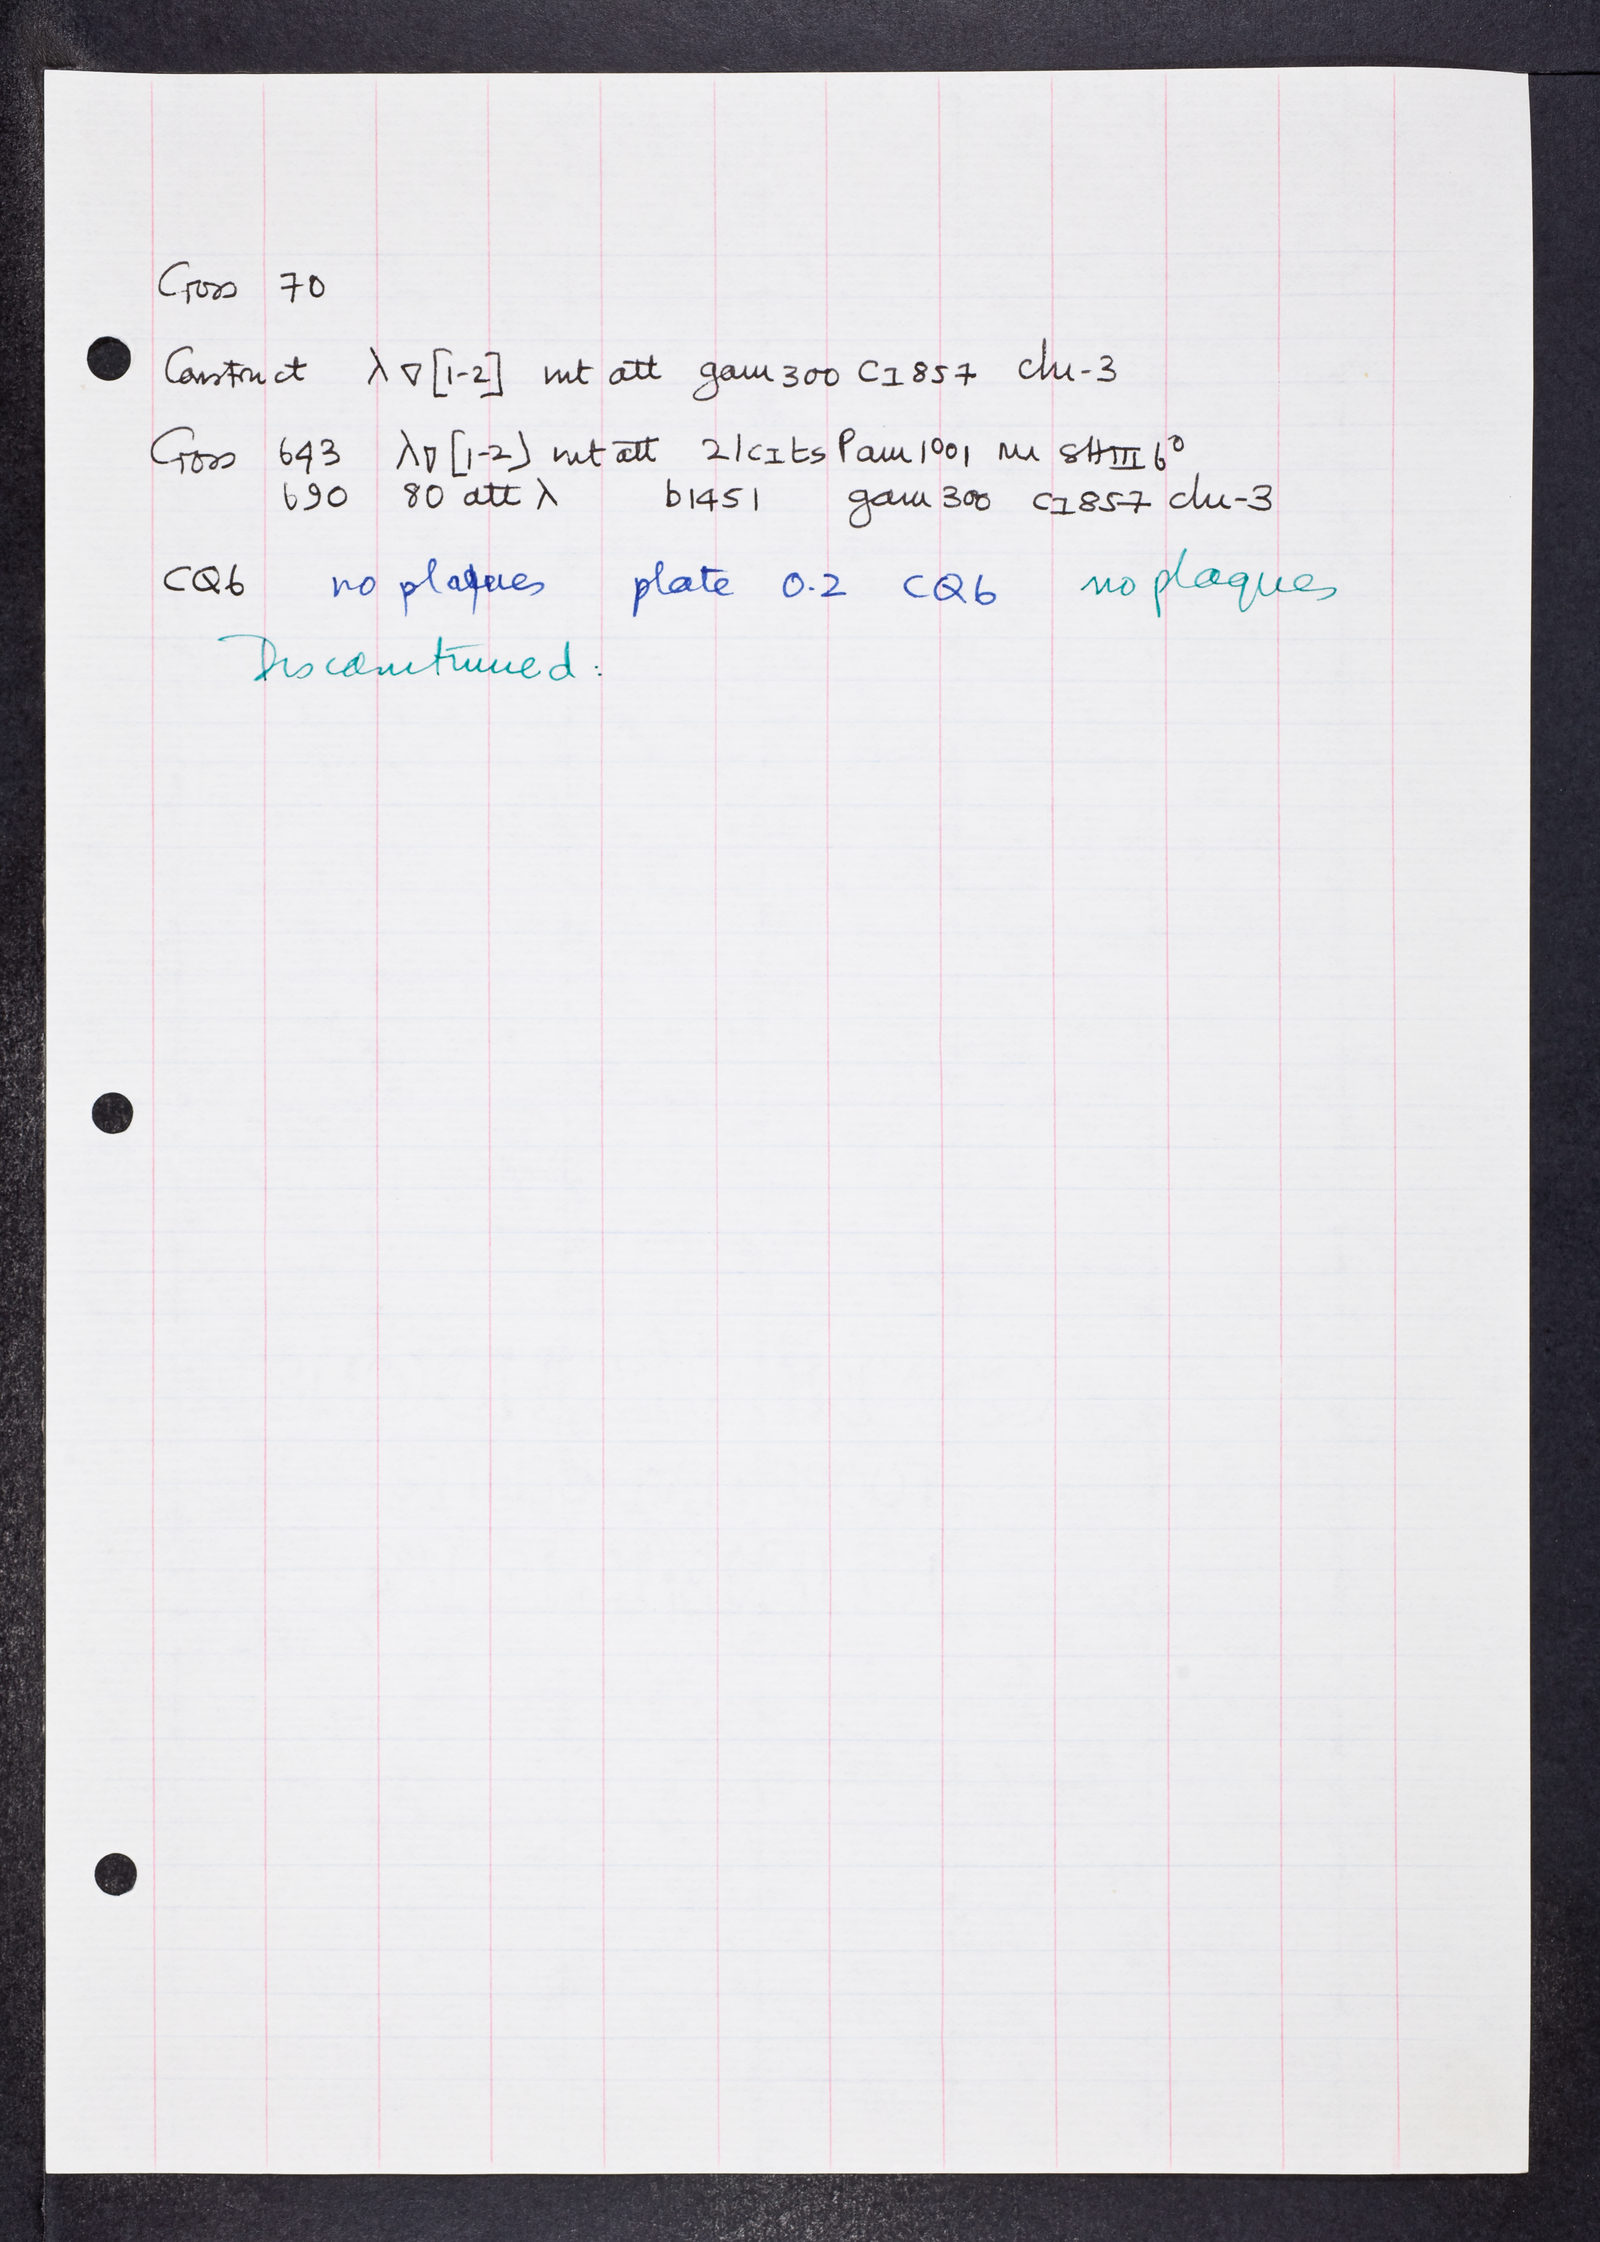 Cross 70
Construct λ∇[1-2] int att gam300 CI857 chi-3
Cross 643 λ∇[1-2] int att 21cIts Pam1001 in SHIII 6°
690 80 att λ b1451 gam300 cI857 chi-3
CQ6 no plaques plate 0.2 CQ6 no plaques
Discontinued: